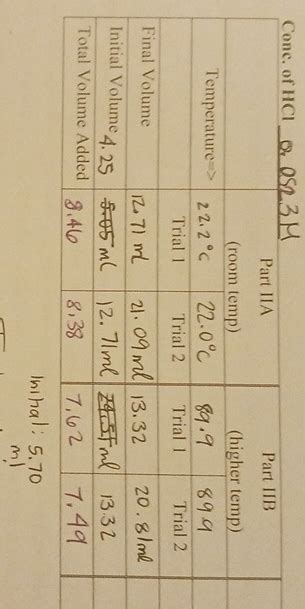 Conc. of HCl 0.0523M
Part IIA Part IIB
(room temp) (higher temp)
Temperature=> 22.2°C 22.0°C 89.9 89.9
Trial 1 Trial 2 Trial 1 Trial 2
Final Volume 12.71 ml 21.09 ml 13.32 20.81ml
Initial Volume 4.25 5.05 ml 12.71ml ml 13.32
Total Volume Added 8.46 8.38 7.62 7.49
Initial: 5.70
ml